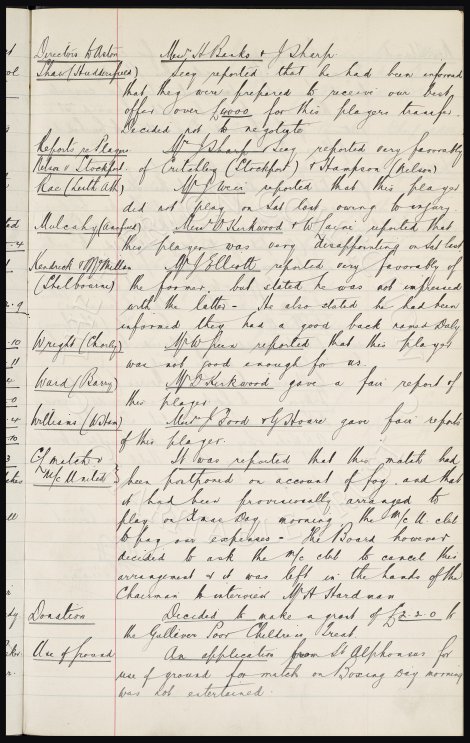 Directors to Aston Messrs H Banks & J Sharp.
Shaw (Huddersfield) Secy reported that he had been informed
that they were prepared to receive our best
offer over £4000 for this players transfer.
Decided not to negotiate.
Reports re Players Mr J Sharp & Secy reported very favorably
Nelson v Stockport. of Critchley (Stockport) & Hampson (Nelson)
Rae (Leith Ath) Mr J Weir reported that this player
did not play on Sat last owing to injury.
Mulcahy Messrs D Kirkwood & W reported that
this player was very disappointing on Sat last
Kendrick & McMillan Mr J Elliott reported very favorably of
(Shelbourne) the former, but stated he was not impressed
with the latter - He also stated he had been
informed they had a good back named Daly
Wright (Chorley) Mr W reported that this player
was not good enough for us.
Ward (Barry) Mr D Kirkwood gave a fair report of
this player.
Williams (W Ham) Messrs J Bood & G Hoare gave fair reports
of this player.
CL match v It was reported that this match had
M/c United been postponed on account of fog, and that
it had been provisionally arranged to
play on Xmas Day morning, the M/c U. club
to pay our expenses - The Board however
decided to ask the M/c club to cancel this
arrangement & it was left in the hands of the
Chairman to interview Mr H Hardman
Donation Decided to make a grant of £2.2.0 to
the Gulliver Poor Childrens Treat.
Use of ground An application from St Alphonsus for
use of ground for match on Boxing Day morning
was not entertained.